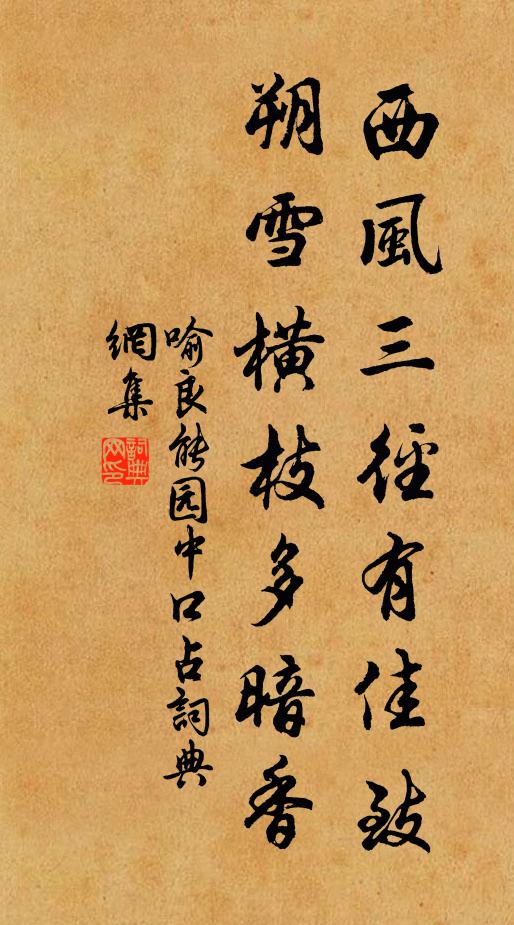 西風三徑有佳致
朔雪橫枝多暗香
喻良能园中口占詞典
網集
詞典网印